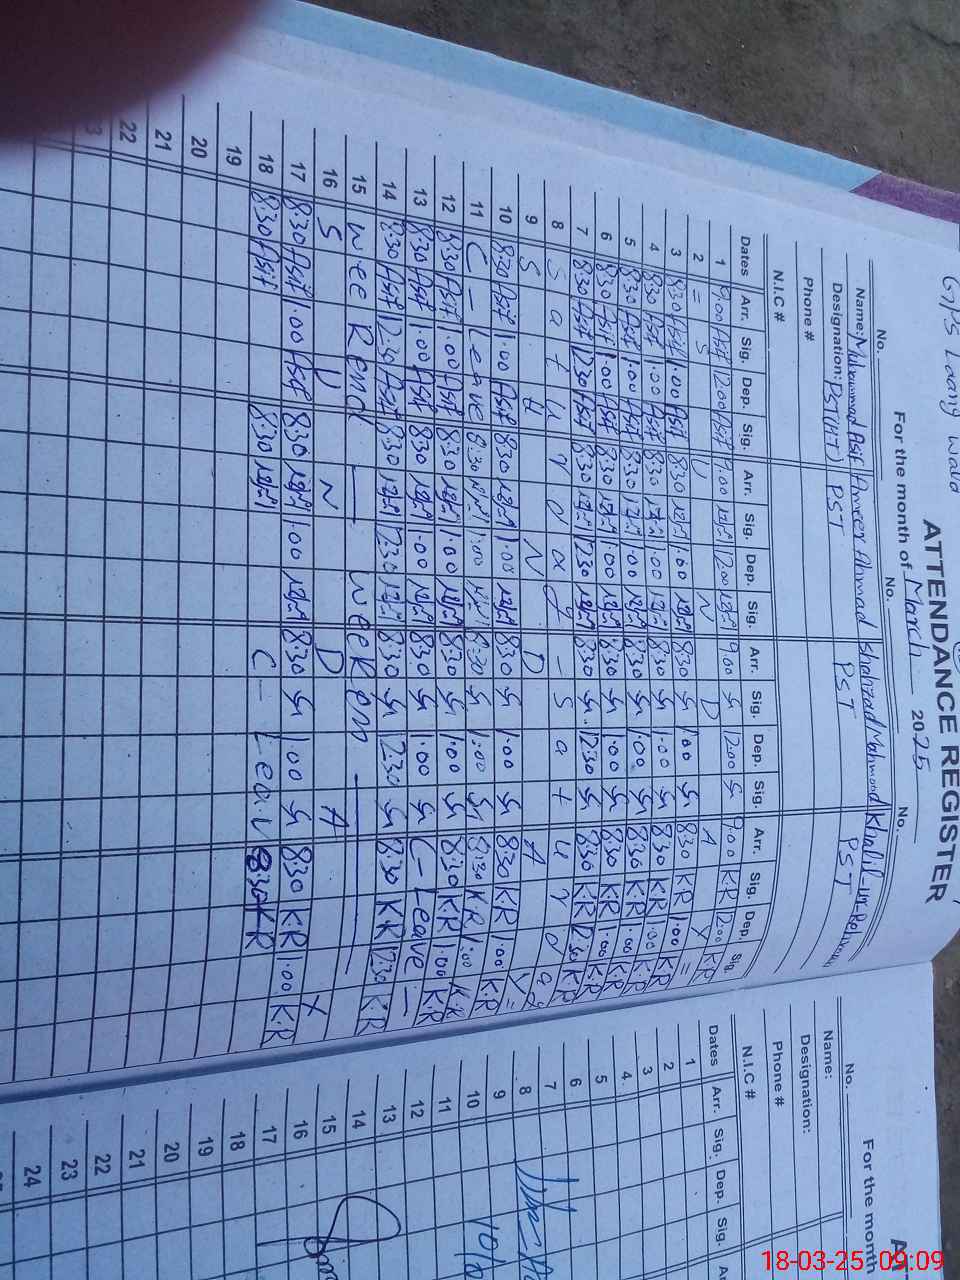 GPS Laang wala
ATTENDANCE REGISTER
For the month of March 2025
No. No. No.
Name: Muhammad Asif Ameer Ahmad Shahzad Mahmood Khalil-ur-Rehman
Designation: PST(HT) PST PST PST
Phone #
N.I.C #
Dates Arr. Sig. Dep. Sig. Arr. Sig. Dep. Sig. Arr. Sig. Dep. Sig. Arr. Sig. Dep. Sig.
1 9:00 Asif 12:00 Asif 9:00 12:00 9:00 12:00 9:00 K.R 12:00 K.R
2 = S U N D A Y =
3 8:30 Asif 1:00 Asif 8:30 1:00 8:30 1:00 8:30 K.R 1:00 K.R
4 8:30 Asif 1:00 Asif 8:30 1:00 8:30 1:00 8:30 K.R 1:00 K.R
5 8:30 Asif 1:00 Asif 8:30 1:00 8:30 1:00 8:30 K.R 1:00 K.R
6 8:30 Asif 1:00 Asif 8:30 1:00 8:30 1:00 8:30 K.R 1:00 K.R
7 8:30 Asif 12:30 Asif 8:30 12:30 8:30 12:30 8:30 K.R 12:30 K.R
8 S a t u r d a y - S a t u r d a y
9 S U N D A Y =
10 8:30 Asif 1:00 Asif 8:30 1:00 8:30 1:00 8:30 K.R 1:00 K.R
11 C - Leave 8:30 1:00 8:30 1:00 8:30 K.R 1:00 K.R
12 8:30 Asif 1:00 Asif 8:30 1:00 8:30 1:00 8:30 K.R 1:00 K.R
13 8:30 Asif 1:00 Asif 8:30 1:00 8:30 1:00 C - Leave -
14 8:30 Asif 12:30 Asif 8:30 12:30 8:30 12:30 8:30 K.R 12:30 K.R
15 Wee Kend — weeKem —
16 S U N D A Y
17 8:30 Asif 1:00 Asif 8:30 1:00 8:30 1:00 8:30 K.R 1:00 K.R
18 8:30 Asif 8:30 C - Leav 8:30 K.R
19
20
21
22
AT
For the month
No.
Name:
Designation:
Phone #
N.I.C #
Dates Arr. Sig. Dep. Sig.
1
2
3
4
5
6
7
8
9
10
11
12
13
14
15
16
17
18
19
20
21
22
23
24
18-03-25 09:09